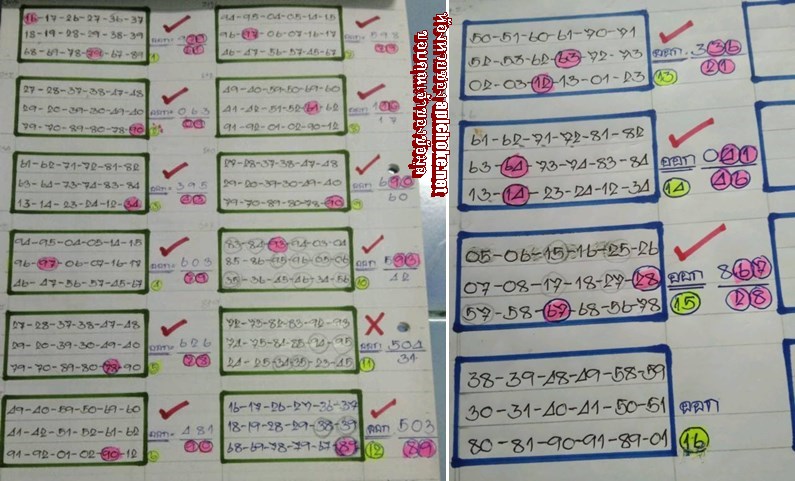 16-17-26-27-36-37
18-19-28-29-38-39
68-69-78-79-67-89
94-95-04-05-14-15
96-97-06-07-16-17
46-47-56-57-45-67
ออก 593
27-28-37-38-47-48
29-20-39-30-49-40
79-70-89-80-78-90
ออก 063
49-40-59-50-69-60
41-42-51-52-61-62
91-92-01-02-90-12
17
61-62-71-72-81-82
63-64-73-74-83-84
13-14-23-24-12-34
ออก 395
27-28-37-38-47-48
29-20-39-30-49-40
79-70-89-80-78-90
ออก 690
60
94-95-04-05-14-15
96-97-06-07-16-17
46-47-56-57-45-67
ออก 603
83-84-93-94-03-04
85-86-95-96-05-06
35-36-45-46-34-56
ออก 593
42
10
27-28-37-38-47-48
29-20-39-30-49-40
79-70-89-80-78-90
ออก 626
72-73-82-83-92-93
74-75-84-85-94-95
24-25-34-35-23-45
ออก 504
31
11
49-40-59-50-69-60
41-42-51-52-61-62
91-92-01-02-90-12
ออก 481
16-17-26-27-36-37
18-19-28-29-38-39
68-69-78-79-67-89
ออก 503
89
12
50-51-60-61-70-71
52-53-62-63-72-73
02-03-12-13-01-23
ออก 336
21
13
61-62-71-72-81-82
63-64-73-74-83-84
13-14-23-24-12-34
ออก 041
46
14
05-06-15-16-25-26
07-08-17-18-27-28
57-58-67-68-56-78
ออก 867
28
15
38-39-48-49-58-59
30-31-40-41-50-51
80-81-90-91-89-01
ออก
16